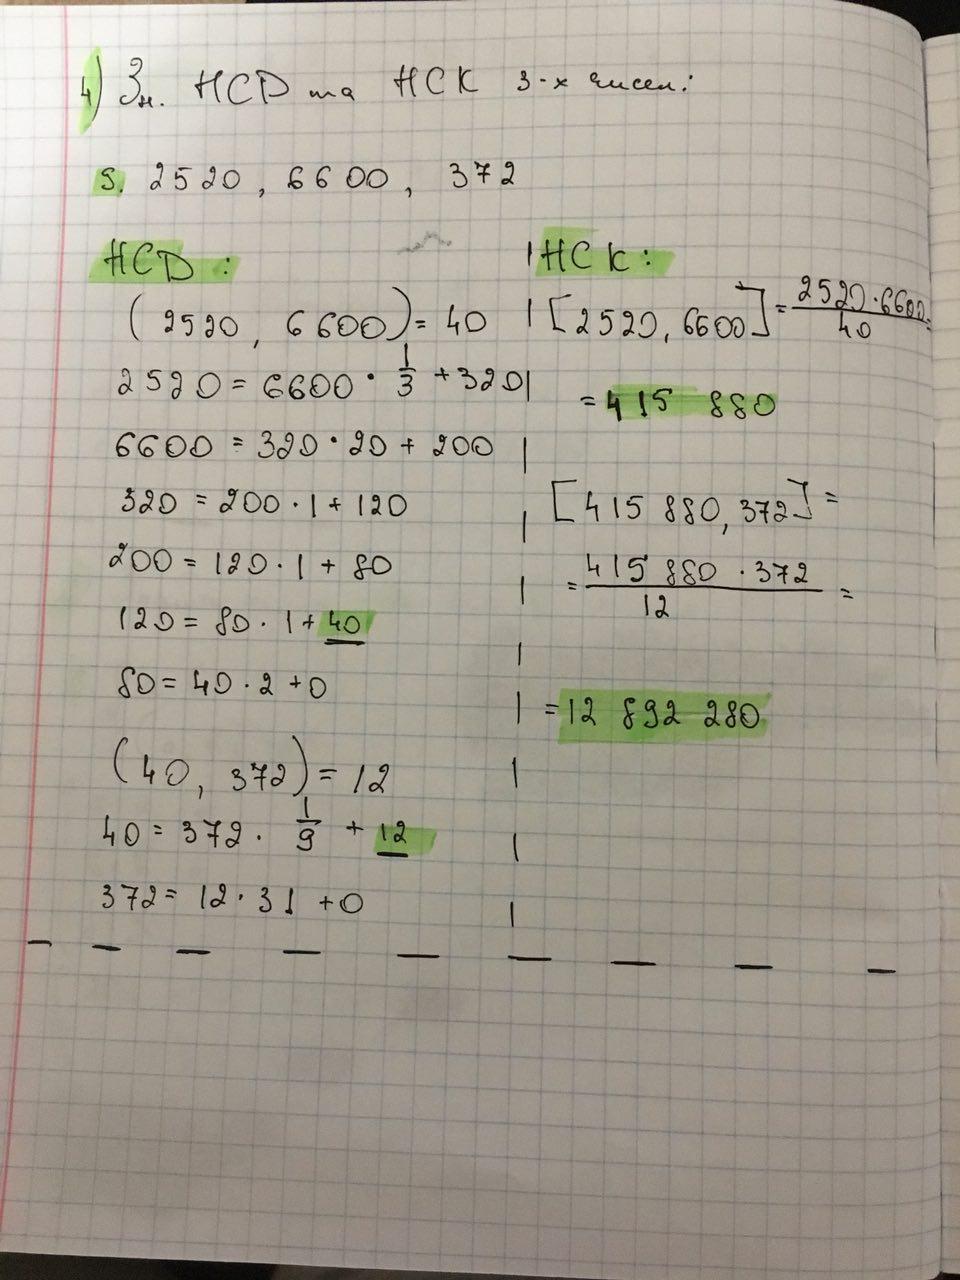 4) Зн. НСД та НСК 3-х чисел:
5. 2520, 6600, 372
НСД:
(2520, 6600) = 40
2520 = 6600 · 1/3 + 320
6600 = 320 · 20 + 200
320 = 200 · 1 + 120
200 = 120 · 1 + 80
120 = 80 · 1 + 40
80 = 40 · 2 + 0
(40, 372) = 12
40 = 372 · 1/9 + 12
372 = 12 · 31 + 0
НСК:
[2520, 6600] = 2520 · 6600 / 40 =
= 415 880
[415 880, 372] =
= 415 880 · 372 / 12 =
= 12 892 280